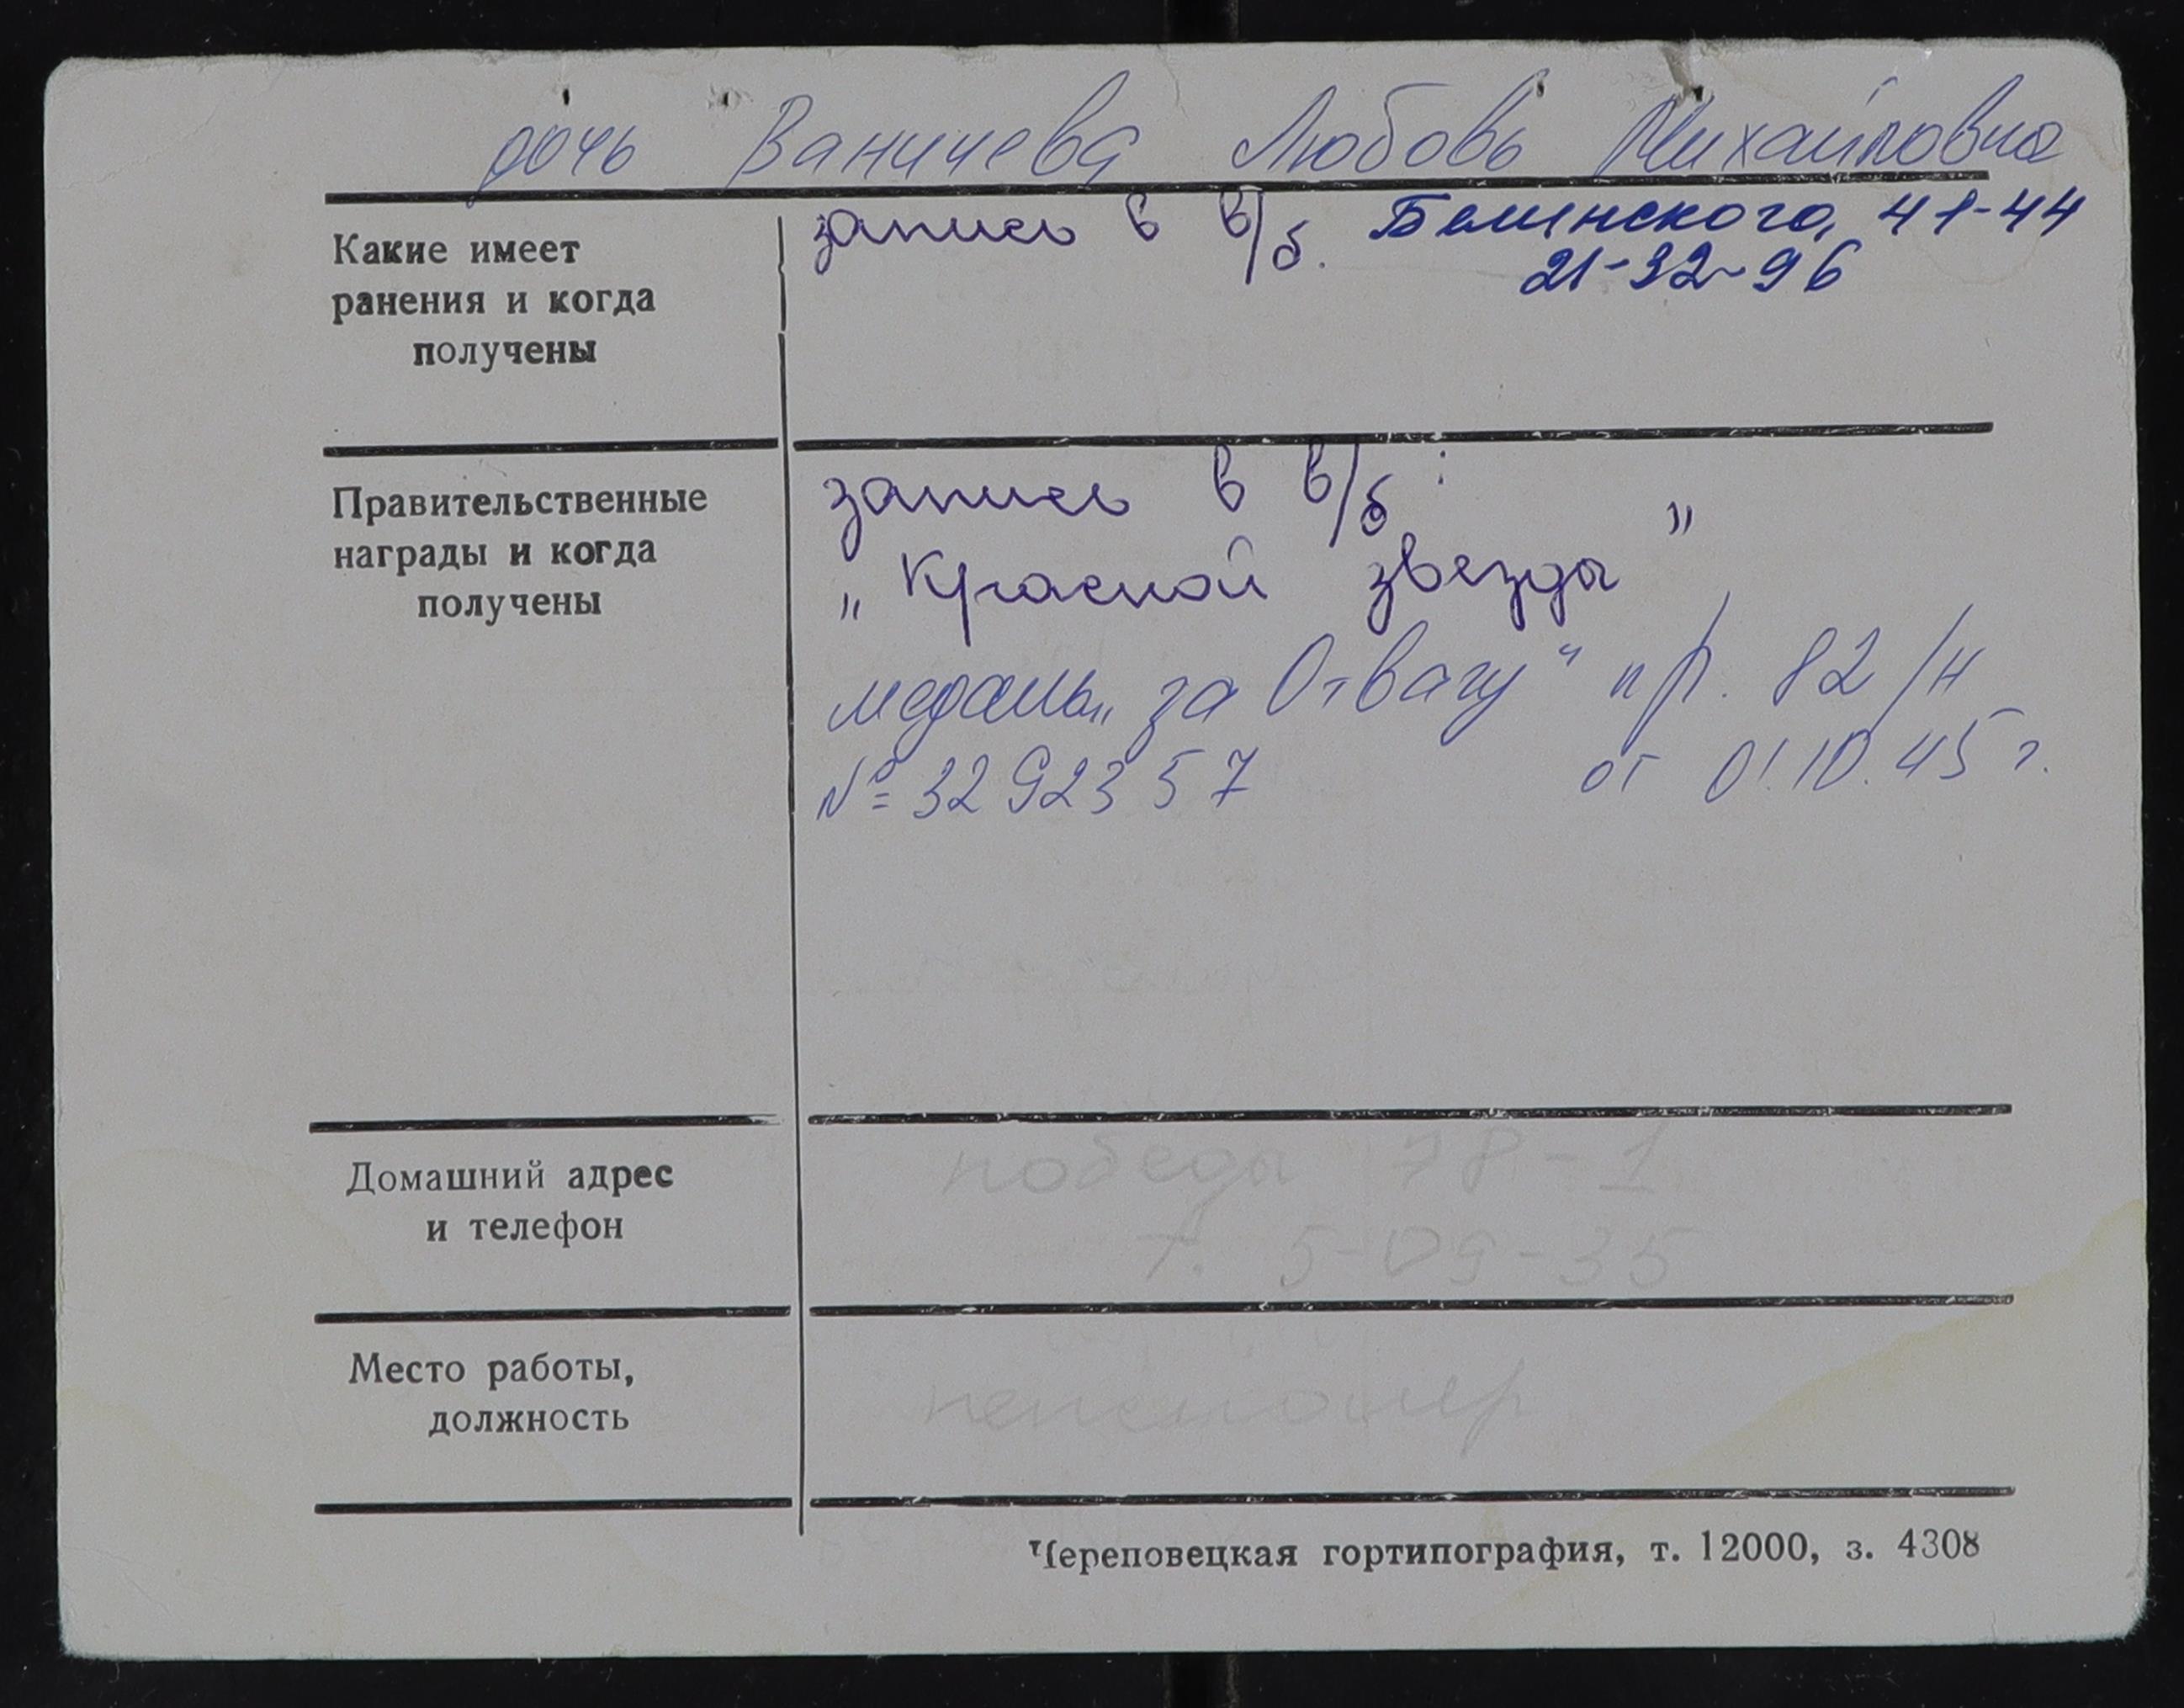 дочь Ваничева Любовь Михайловна
Какие имеет
ранения и когда
получены
запись в в/б. Белинского, 41-44
21-32-96
Правительственные
награды и когда
получены
запись в в/б:
„Красной звезды"
медаль „за Отвагу" пр. 82/н
№ 3292357 от 01.10.45 г.
Домашний адрес
и телефон
победы 78-1
т. 5-09-35
Место работы,
должность
пенсионер
Череповецкая гортипография, т. 12000, з. 4308